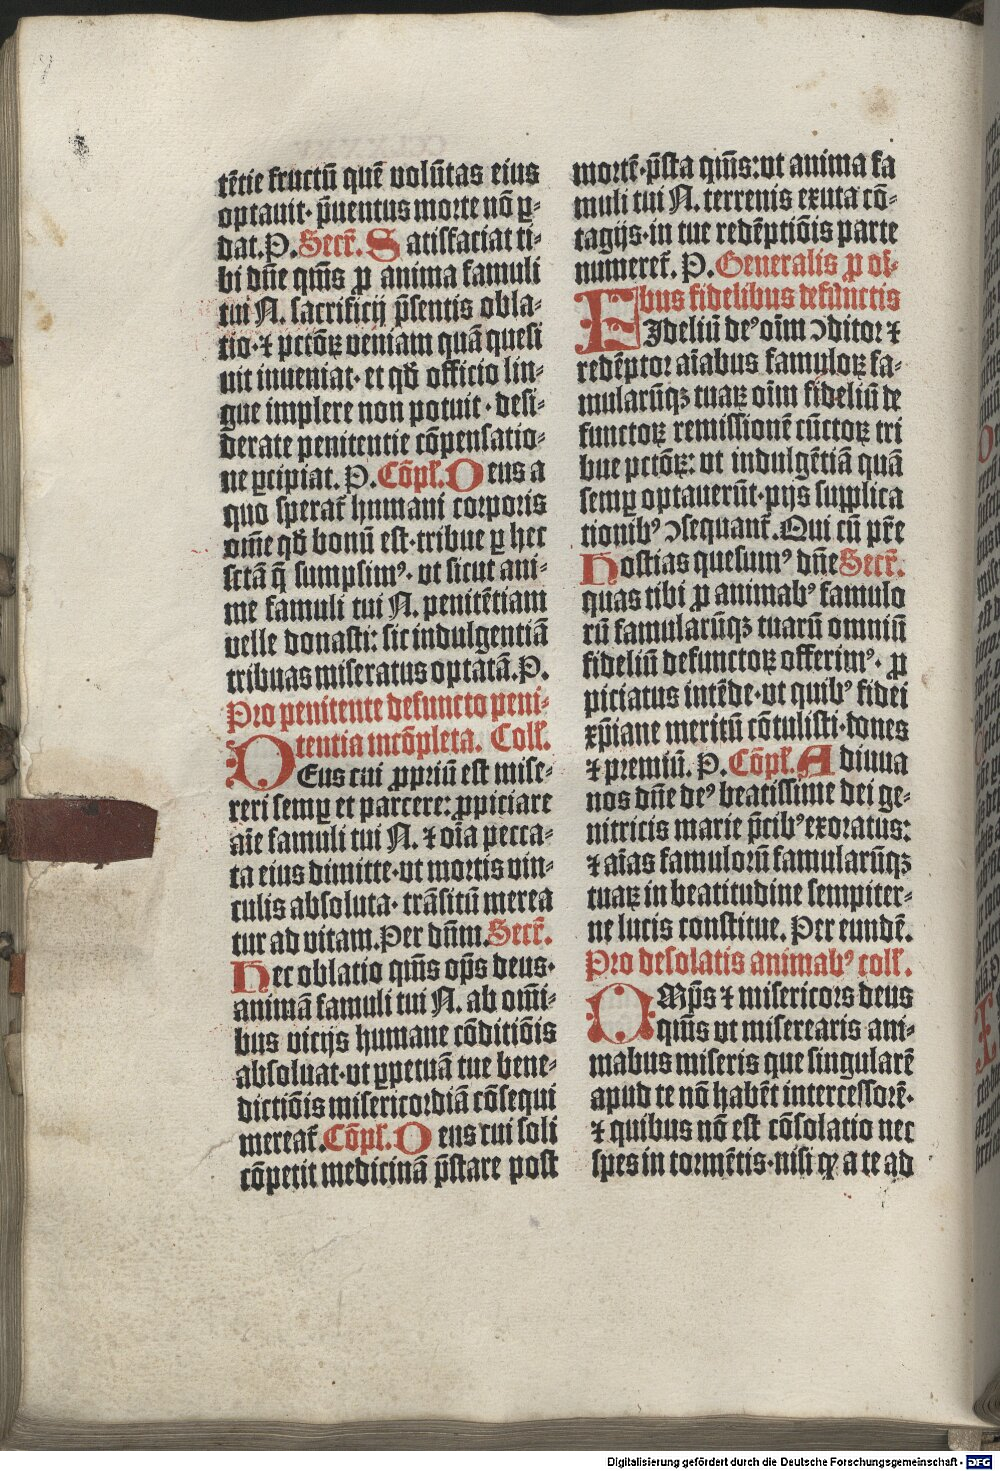 tētie fructū quē volūtas eius
optauit· p̄uentus morte nō ꝑ⸗
dat. P. Secr̄. Satisfaciat ti⸗
bi dn̄e qm̄s ꝓ anima famuli
tui N. sacrificij p̄sentis obla⸗
tio· ⁊ pctōꝝ veniam quā quesi
uit inueniat· et qd̄ officio lin⸗
gue implere non potuit· desi⸗
derate penitentie cōpensatio⸗
ne ꝑcipiat. P. Cōpl̄. Deus a
quo sperat̄ humani corporis
om̄e qd̄ bonū est· tribue ꝑ hec
sctā q̄ sumpsimꝰ· vt sicut ani⸗
me famuli tui N. penitētiam
velle donasti: sic indulgentiā
tribuas miseratus optatā. P.
Pro penitente defuncto peni⸗
tentia incōpleta. Coll̄.
DEus cui ꝓpriū est mise⸗
reri semꝑ et parcere: ꝓpiciare
aīe famuli tui N. ⁊ oīa pecca⸗
ta eius dimitte· vt mortis vin⸗
culis absoluta· trāsitū merea
tur ad vitam. Per dn̄m. Secr̄.
Hec oblatio qm̄s op̄s deus·
animā famuli tui N. ab om̄i⸗
bus vicijs humane cōditiōis
absoluat· vt ꝑpetuā tue bene⸗
dictiōis misericordiā cōsequi
mereat̄. Cōpl̄. Deus cui soli
cōpetit medicinā p̄stare post
mortē· p̄sta qm̄s: vt anima fa
muli tui N. terrenis exuta cō⸗
tagijs· in tue redēptiōis parte
numeret̄. P. Generalis ꝓ oī⸗
bus fidelibus defūnctis
FIdeliū deꝰ oīm ↄditor ⁊
redēptor aīabus famuloꝝ fa⸗
mularūqꝫ tuaꝝ oīm fideliū de
functoꝝ remissionē cūctoꝝ tri
bue pctōꝝ: vt indulgētiā quā
semꝑ optauerūt· pijs supplica
tionibꝰ ↄsequant̄. Qui cū pr̄e
Hostias quesumꝰ dn̄e Secr̄.
quas tibi ꝓ animabꝰ famulo
rū famularūqꝫ tuarū omniū
fideliū defunctoꝝ offerimꝰ· ꝓ
piciatus intēde· vt quibꝰ fidei
xp̄iane meritū cōtulisti· dones
⁊ premiū. P. Cōpl̄. Adiuua
nos dn̄e deꝰ beatissime dei ge⸗
nitricis marie p̄cibꝰ exoratus:
⁊ aīas famulorū famularūqꝫ
tuaꝝ in beatitudine sempiter⸗
ne lucis constitue. Per eundē.
Pro desolatis animabꝰ coll̄.
OMp̄s ⁊ misericors deus
qm̄s vt miserearis ani⸗
mabus miseris que singularē
apud te nō habēt intercessorē·
⁊ quibus nō est cōsolatio nec
spes in tormētis· nisi ꝙ a te ad
Digitalisierung gefördert durch die Deutsche Forschungsgemeinschaft - DFG